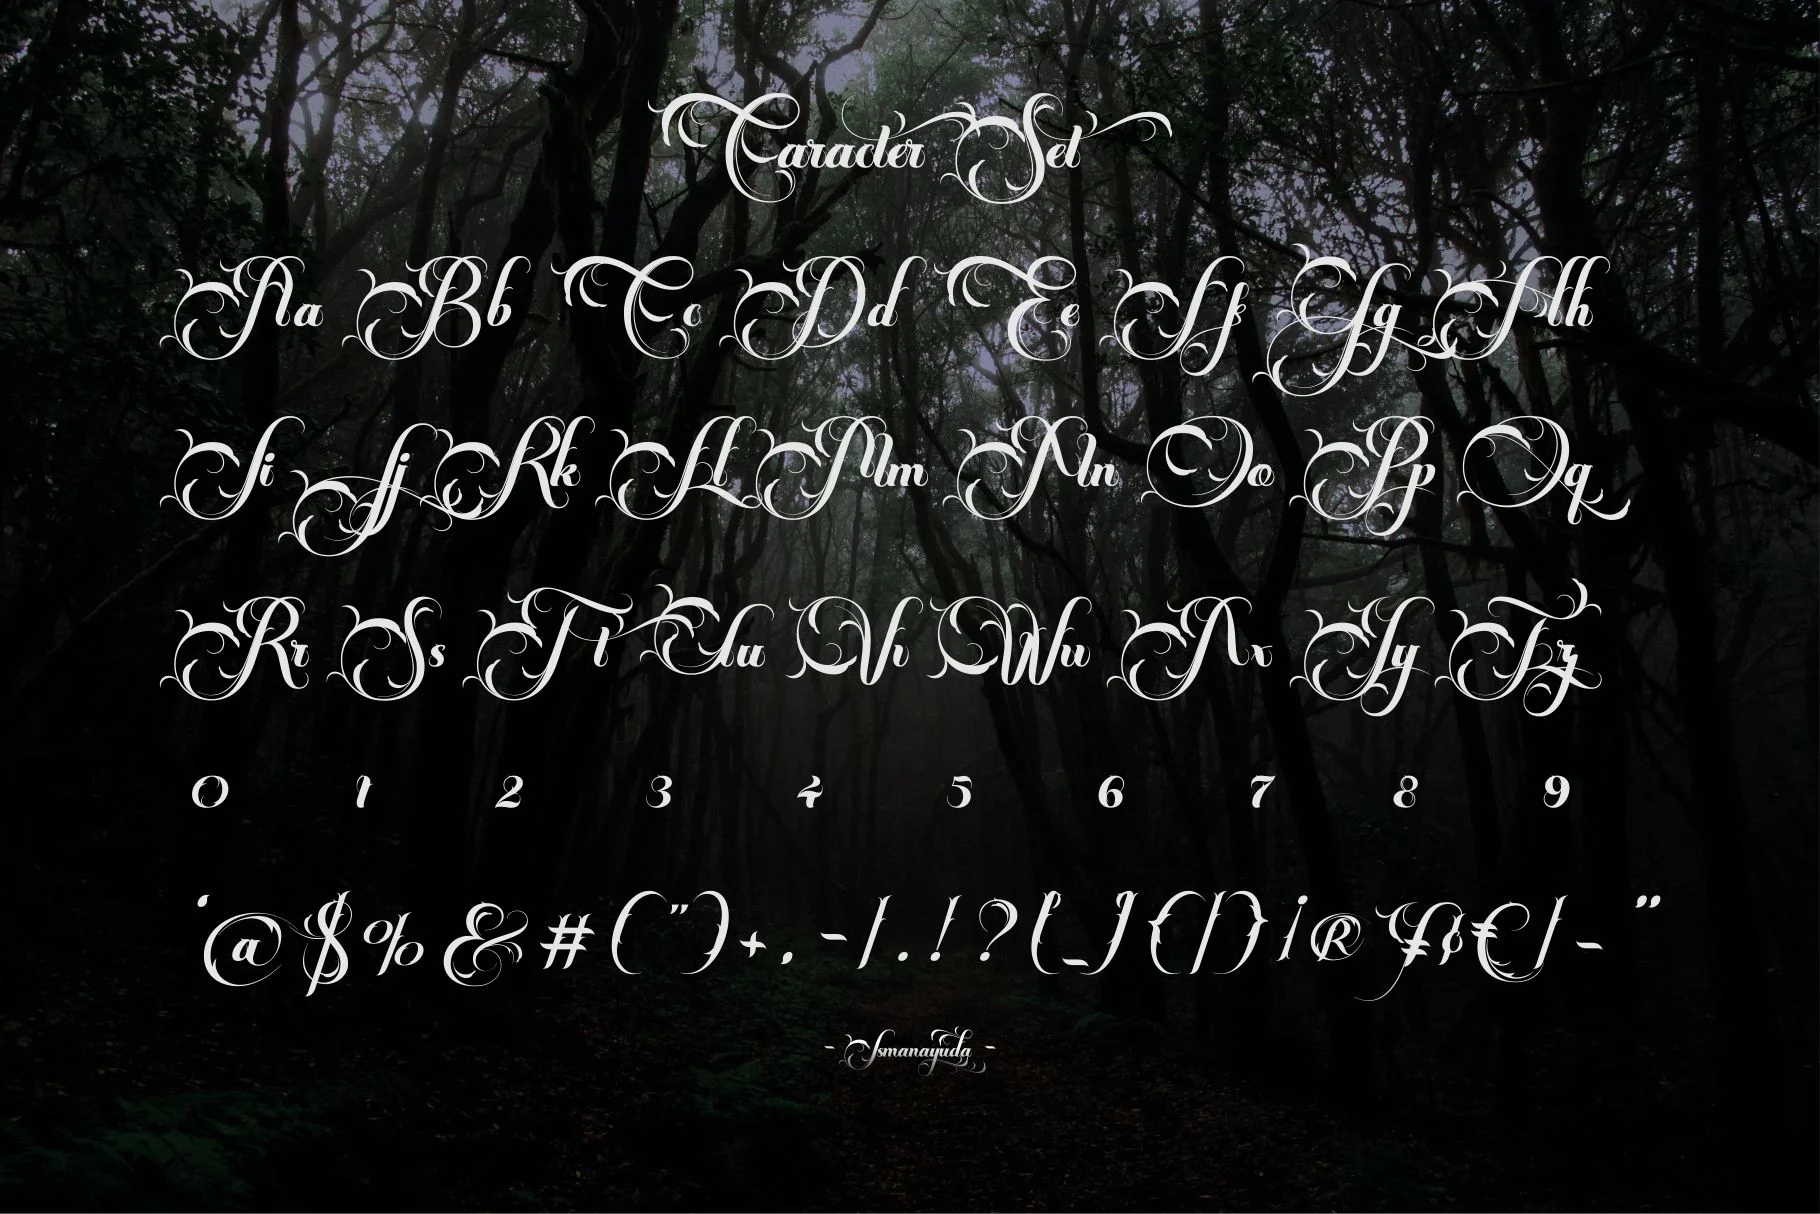 Caracter Set
Aa Bb Cc Dd Ee Ff Gg Hh
Ii Jj Kk Ll Mm Nn Oo Pp Qq
Rr Ss Tt Uu Vv Ww Xx Yy Zz
0 1 2 3 4 5 6 7 8 9
‘ @ $ % & # ( " ) + , - / . ! ? [ _ ] { | } ¡ ® ¥ ¢ € / - "
- Ismanayuda -